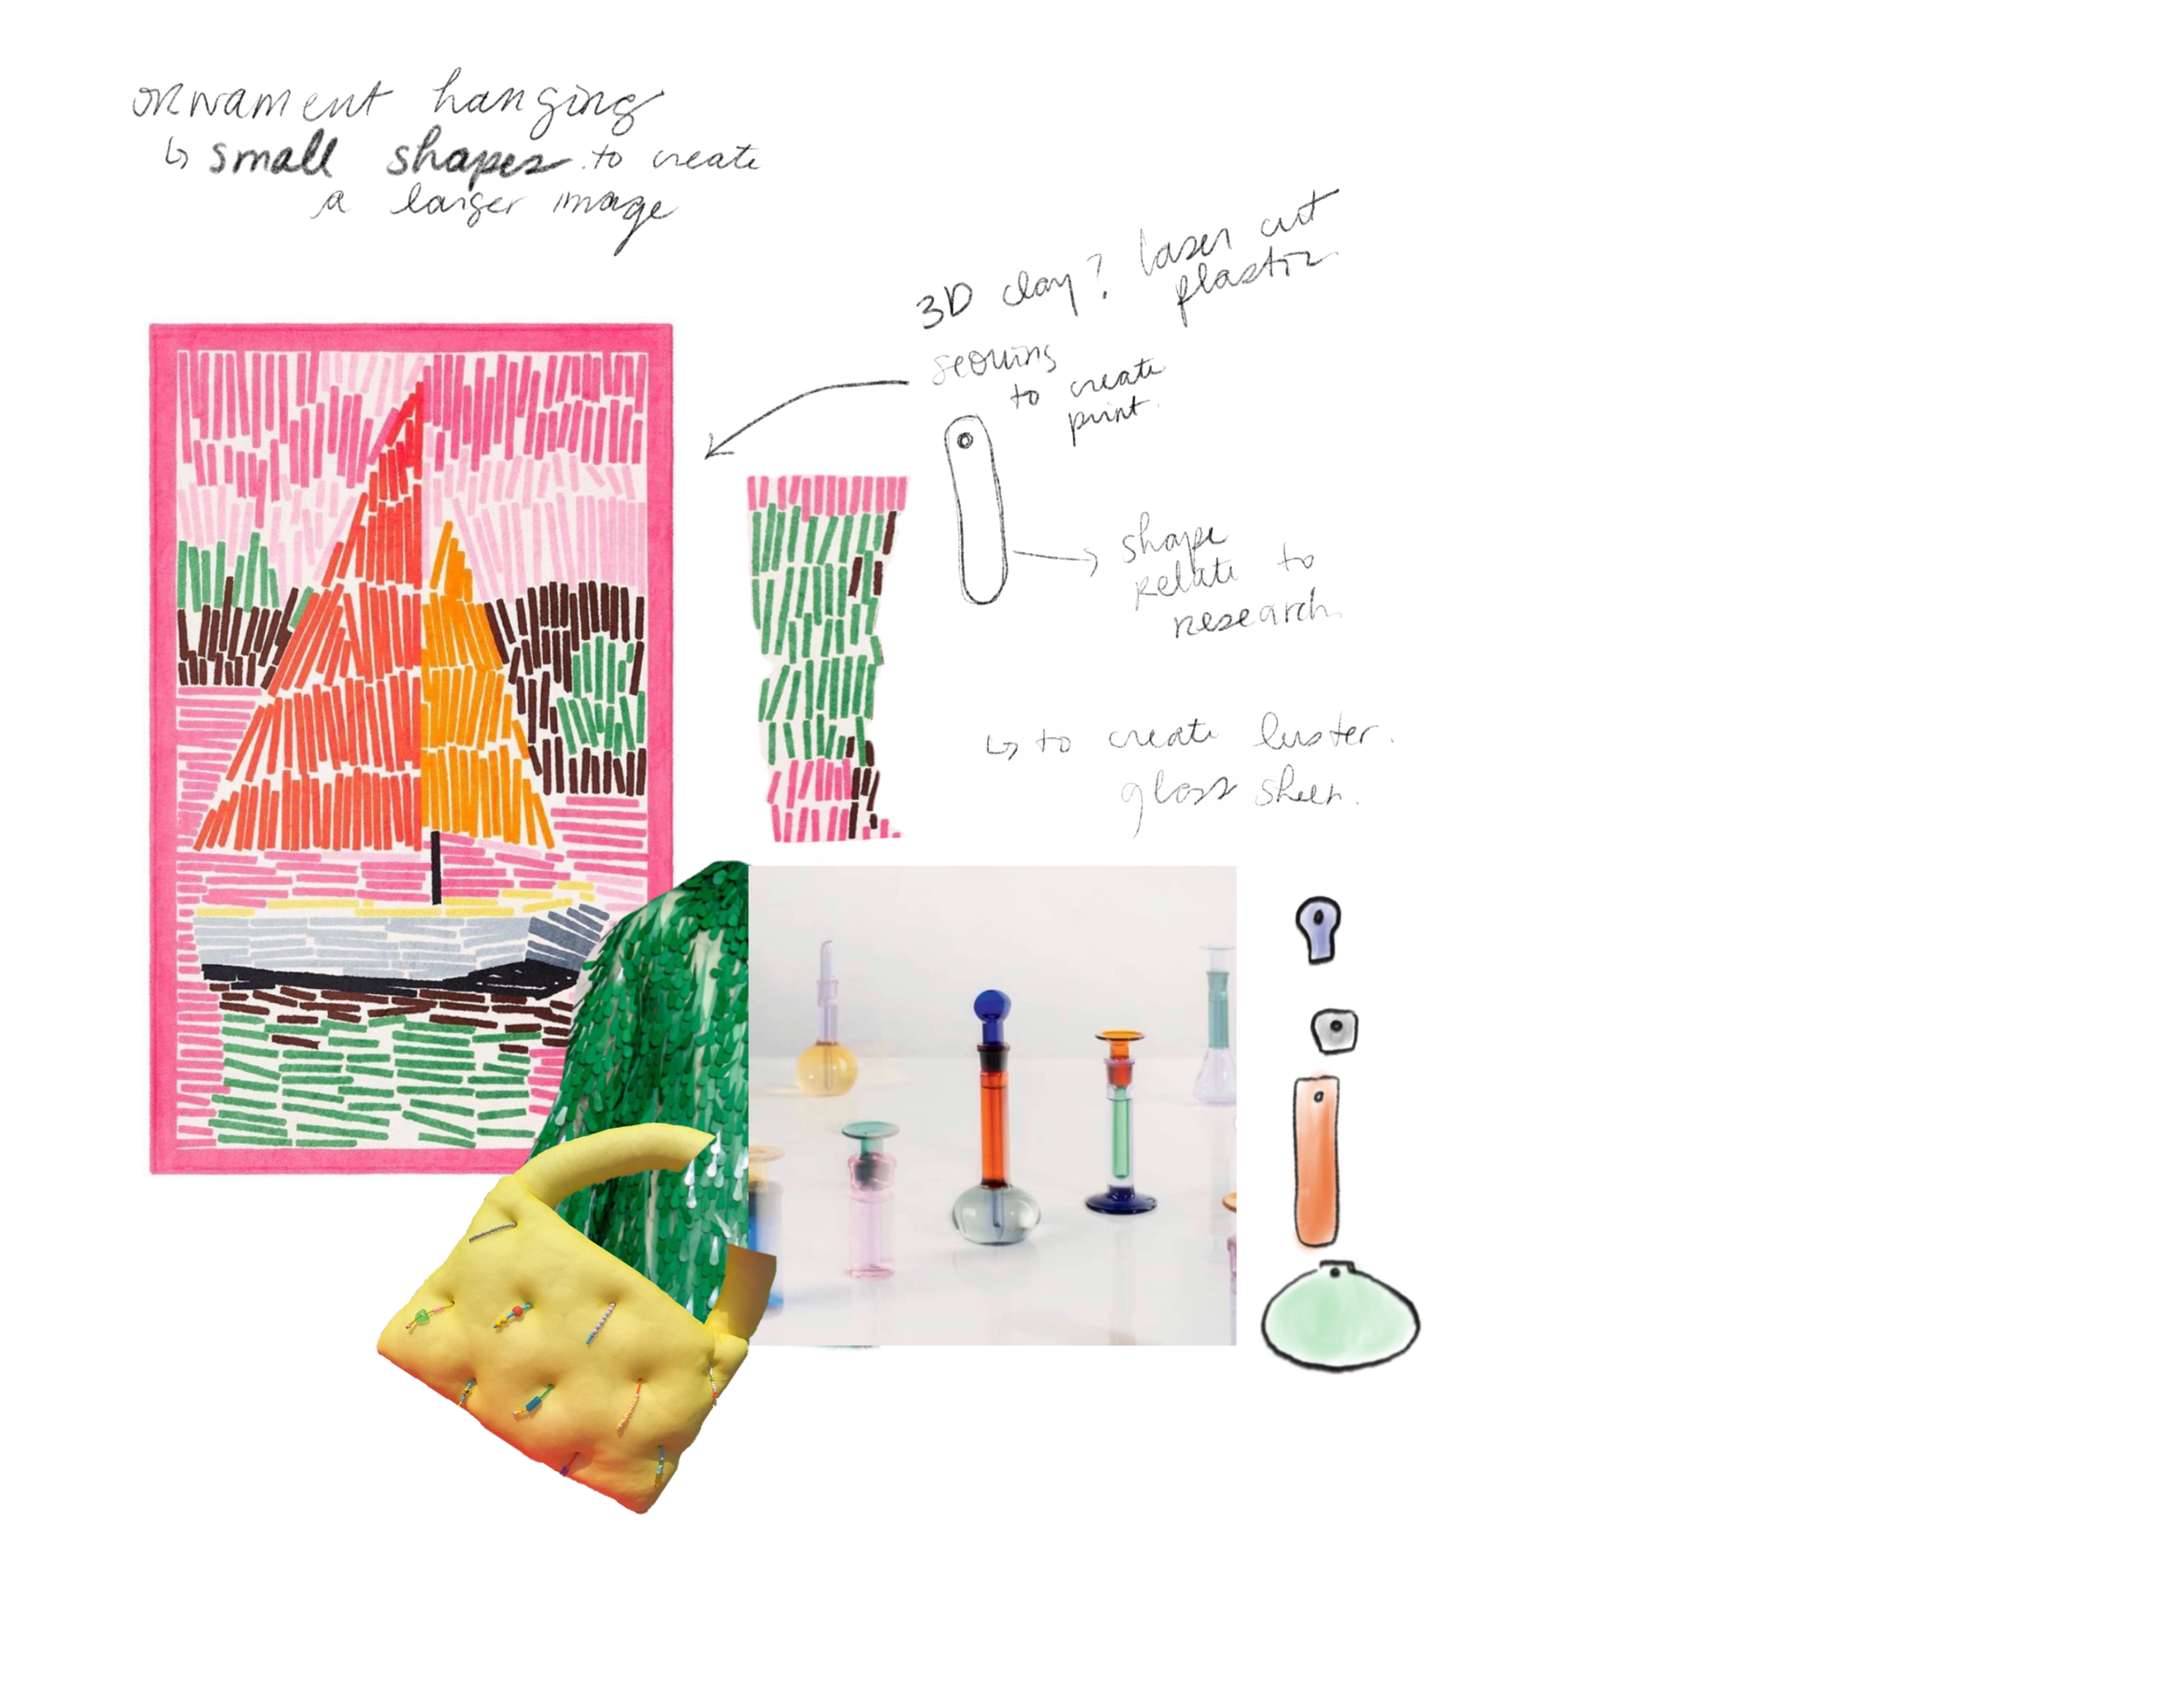 ornament hanging
↳ small shapes to create
a larger image
3D clay? laser cut
plastic
sequins
to create
print.
shape
relate to
research
↳ to create luster.
gloss sheen.